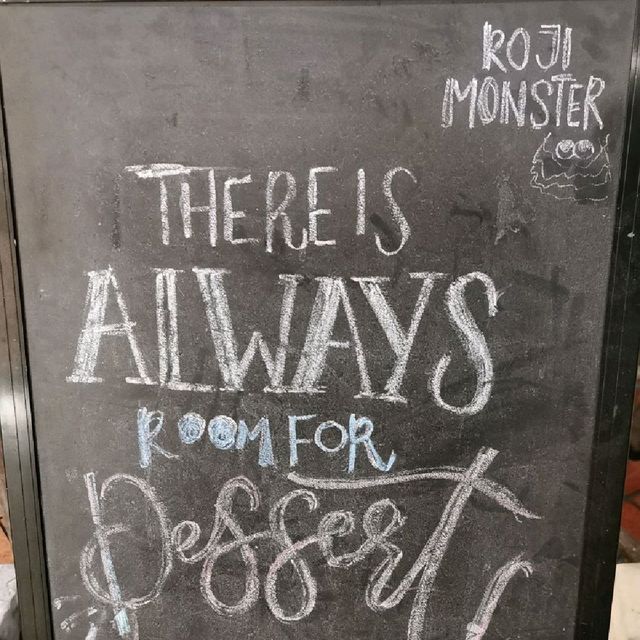 ROJI
MONSTER
THERE IS
ALWAYS
ROOM FOR
Dessert